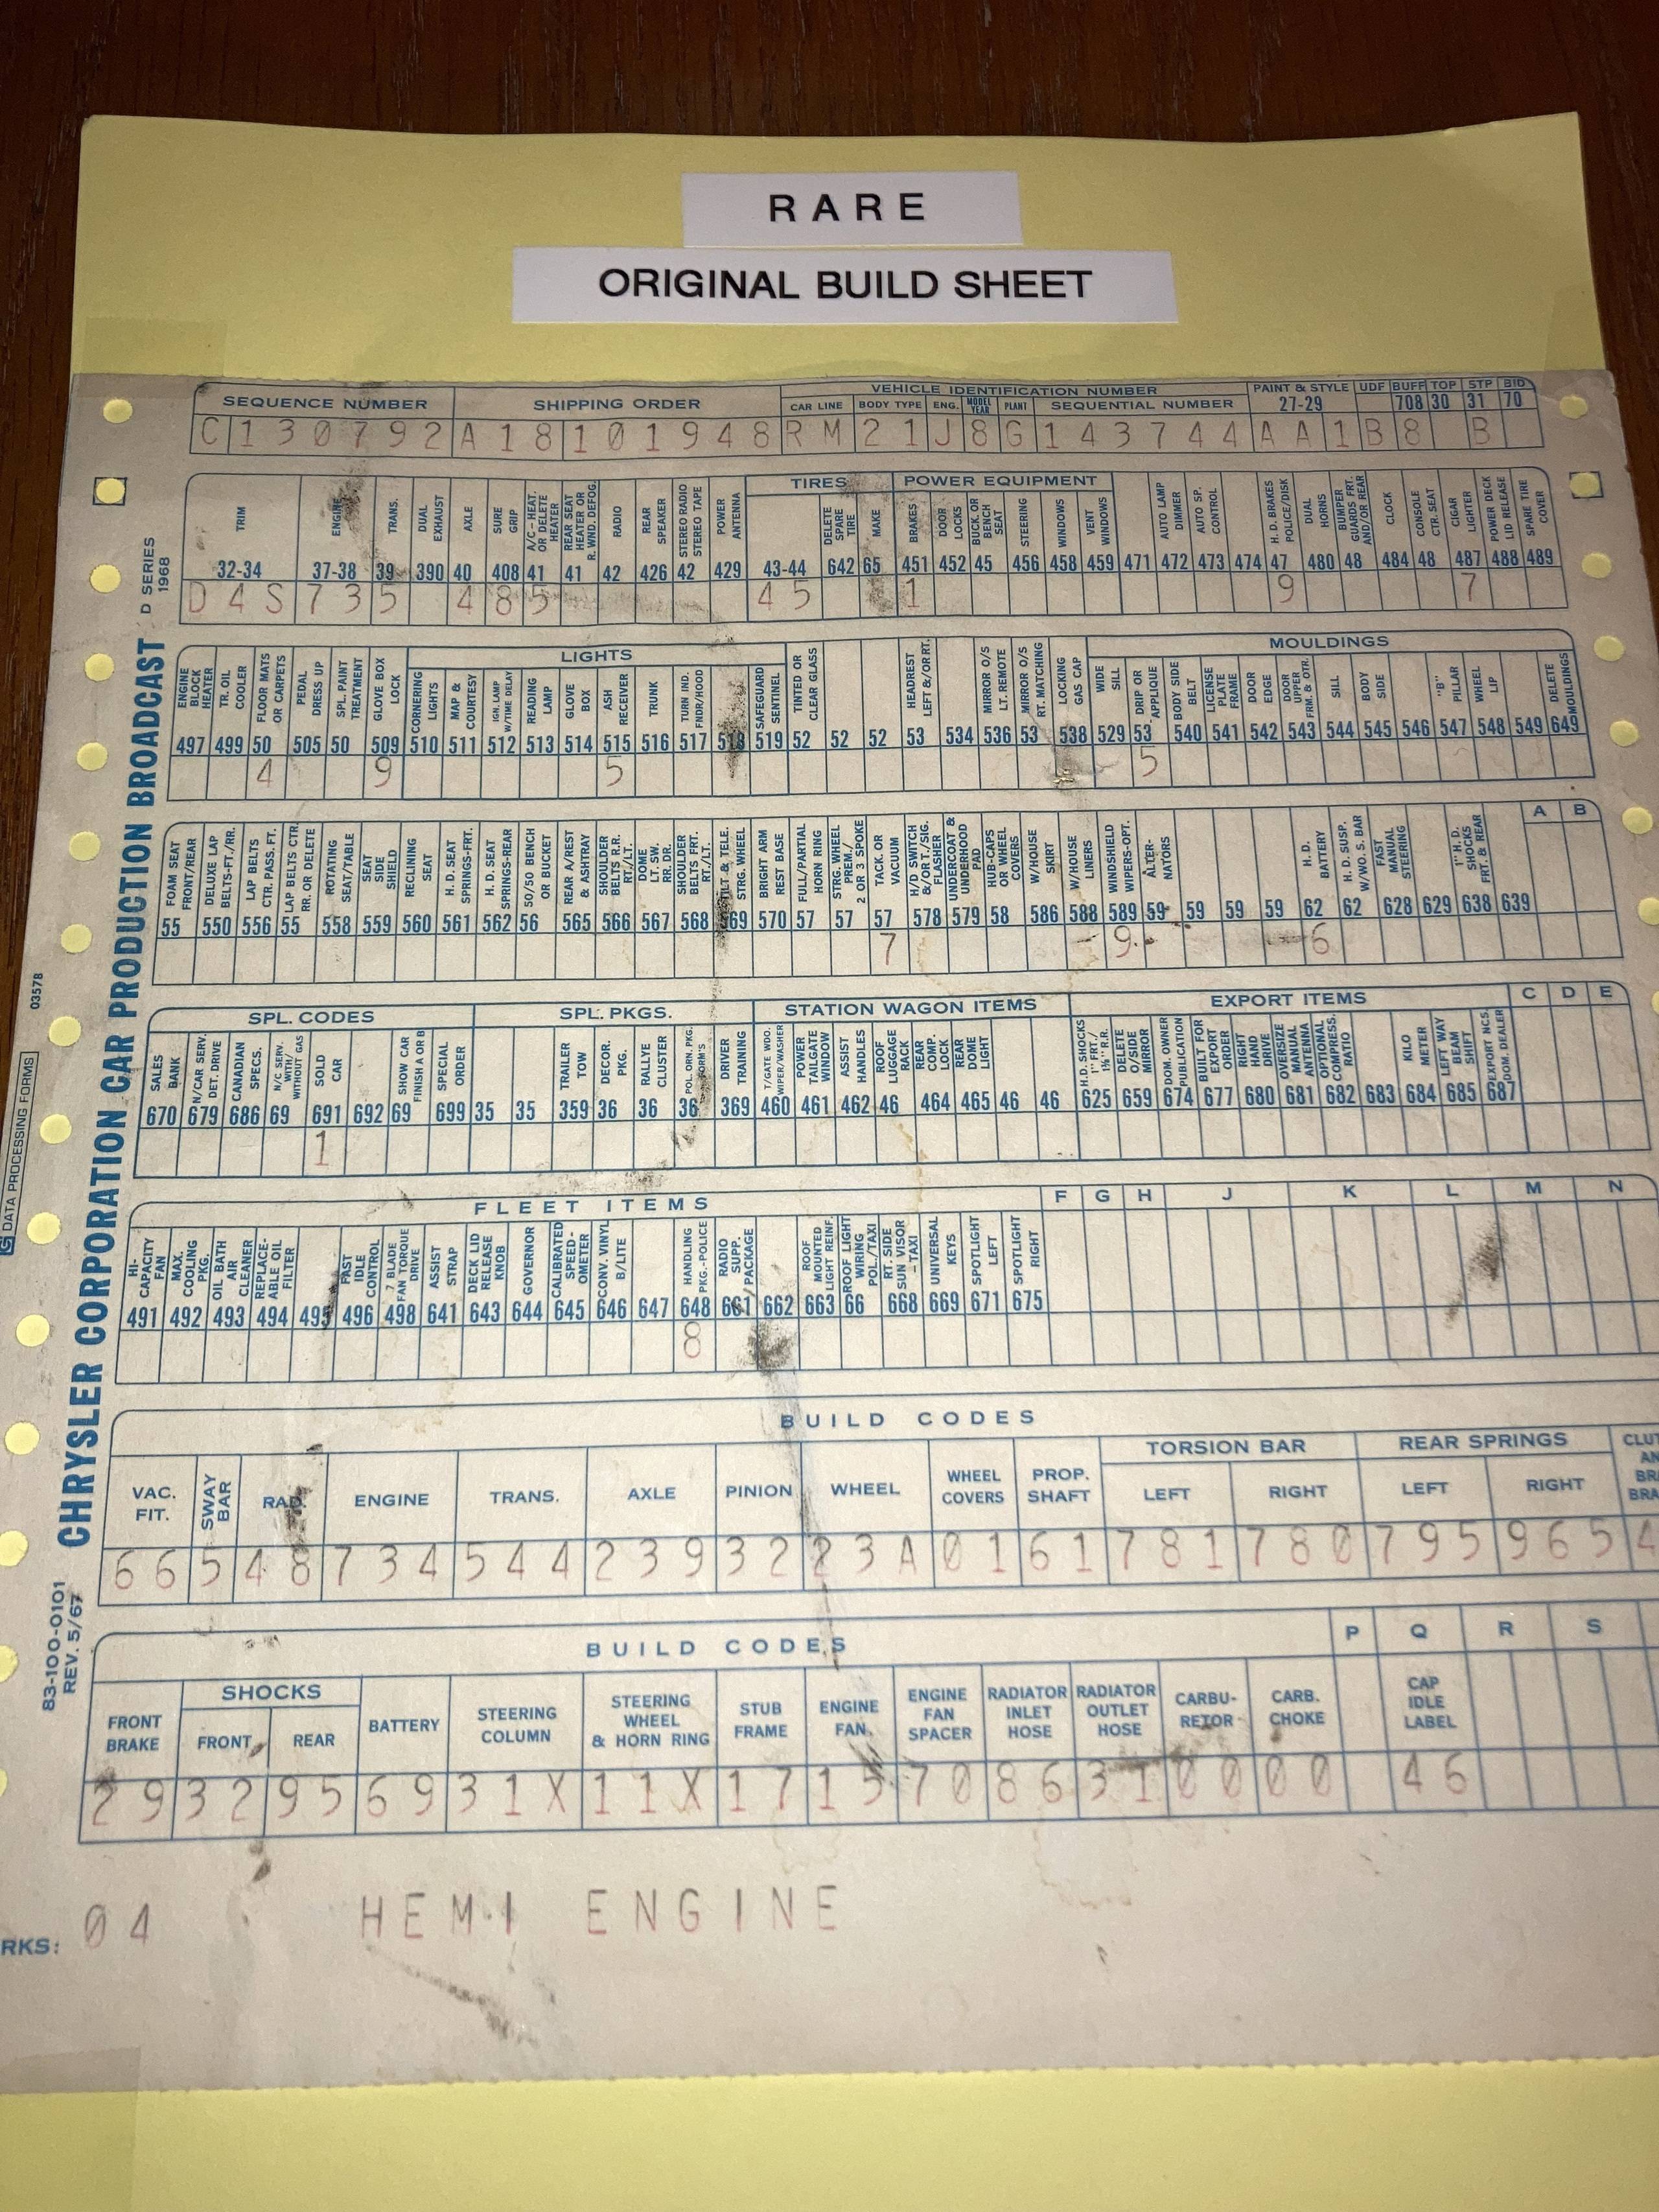 RARE
ORIGINAL BUILD SHEET
SEQUENCE NUMBER SHIPPING ORDER VEHICLE IDENTIFICATION NUMBER PAINT & STYLE UDF BUFF TOP STP BID
CAR LINE BODY TYPE ENG. MODEL YEAR PLANT SEQUENTIAL NUMBER 27-29 708 30 31 70
C 130792 A18 101948 RM 21 J 8 G 143744 AA1 B 8 B
TIRES POWER EQUIPMENT
TRIM ENGINE TRANS. DUAL EXHAUST AXLE SURE GRIP A/C - HEAT. OR DELETE HEATER REAR SEAT HEATER OR R. WND. DEFOG. RADIO REAR SPEAKER STEREO RADIO STEREO TAPE POWER ANTENNA DELETE SPARE TIRE MAKE BRAKES DOOR LOCKS BUCK. OR BENCH SEAT STEERING WINDOWS VENT WINDOWS AUTO LAMP DIMMER AUTO SP. CONTROL H. D. BRAKES POLICE/DISK DUAL HORNS BUMPER GUARDS FRT. AND/OR REAR CLOCK CONSOLE CTR. SEAT CIGAR LIGHTER POWER DECK LID RELEASE SPARE TIRE COVER
32-34 37-38 39 390 40 408 41 41 42 426 42 429 43-44 642 65 451 452 45 456 458 459 471 472 473 474 47 480 48 484 48 487 488 489
D4S 73 5 4 8 5 45 1 9 7
LIGHTS MOULDINGS
ENGINE BLOCK HEATER TR. OIL COOLER FLOOR MATS OR CARPETS PEDAL DRESS UP SPL. PAINT TREATMENT GLOVE BOX LOCK CORNERING LIGHTS MAP & COURTESY IGN. LAMP W/TIME DELAY READING LAMP GLOVE BOX ASH RECEIVER TRUNK TURN IND. FNDR/HOOD SAFEGUARD SENTINEL TINTED OR CLEAR GLASS HEADREST LEFT &/OR RT. MIRROR O/S LT. REMOTE MIRROR O/S RT. MATCHING LOCKING GAS CAP WIDE SILL DRIP OR APPLIQUE BODY SIDE BELT LICENSE PLATE FRAME DOOR EDGE DOOR UPPER FRM. & OTR. SILL BODY SIDE "B" PILLAR WHEEL LIP DELETE MOULDINGS
497 499 50 505 50 509 510 511 512 513 514 515 516 517 518 519 52 52 52 53 534 536 53 538 529 53 540 541 542 543 544 545 546 547 548 549 649
4 9 5 5
A B
FOAM SEAT FRONT/REAR DELUXE LAP BELTS-FT./RR. LAP BELTS CTR. PASS. FT. LAP BELTS CTR. RR. OR DELETE ROTATING SEAT/TABLE SEAT SIDE SHIELD RECLINING SEAT H. D. SEAT SPRINGS-FRT. H. D. SEAT SPRINGS-REAR 50/50 BENCH OR BUCKET REAR A/REST & ASHTRAY SHOULDER BELTS R.R. RT./LT. DOME LT. SW. RR. DR. SHOULDER BELTS FRT. RT./LT. TILT & TELE. STRG. WHEEL BRIGHT ARM REST BASE FULL/PARTIAL HORN RING STRG. WHEEL PREM./ 2 OR 3 SPOKE TACK. OR VACUUM H/D SWITCH &/OR T./SIG. FLASHER UNDERCOAT & UNDERHOOD PAD HUB-CAPS OR WHEEL COVERS W/HOUSE SKIRT W/HOUSE LINERS WINDSHIELD WIPERS-OPT. ALTER-NATORS H. D. BATTERY H. D. SUSP. W/WO. S. BAR FAST MANUAL STEERING 1" H. D. SHOCKS FRT. & REAR
55 550 556 55 558 559 560 561 562 56 565 566 567 568 569 570 57 57 57 578 579 58 586 588 589 59 59 59 59 62 62 628 629 638 639
7 9 6
SPL. CODES SPL. PKGS. STATION WAGON ITEMS EXPORT ITEMS C D E
SALES BANK N/CAR SERV. DET. DRIVE CANADIAN SPECS. N/C SERV. WITH/ WITHOUT GAS SOLD CAR SHOW CAR FINISH A OR B SPECIAL ORDER TRAILER TOW DECOR. PKG. RALLYE CLUSTER POL. ORN. PKG. FORM'S DRIVER TRAINING T/GATE WDO. WIPER/WASHER POWER TAILGATE WINDOW ASSIST HANDLES ROOF LUGGAGE RACK REAR COMP. LOCK REAR DOME LIGHT H.D. SHOCKS 1" FRT./ 1⅜" R.R. DELETE O/SIDE MIRROR DOM. OWNER PUBLICATION BUILT FOR EXPORT ORDER RIGHT HAND DRIVE OVERSIZE MANUAL ANTENNA OPTIONAL COMPRESS. RATIO KILO METER LEFT WAY BEAM SHIFT EXPORT NCS. DOM. DEALER
670 679 686 69 691 692 69 699 35 35 359 36 36 36 369 460 461 462 46 464 465 46 46 625 659 674 677 680 681 682 683 684 685 687
1
FLEET ITEMS F G H J K L M N
HI-CAPACITY FAN MAX. COOLING PKG. OIL BATH AIR CLEANER REPLACE-ABLE OIL FILTER FAST IDLE CONTROL 7 BLADE FAN TORQUE DRIVE ASSIST STRAP DECK LID RELEASE KNOB GOVERNOR CALIBRATED SPEED-OMETER CONV. VINYL B/LITE HANDLING PKG.-POLICE RADIO SUPP. PACKAGE ROOF MOUNTED LIGHT REINF. ROOF LIGHT WIRING POL./TAXI RT. SIDE SUN VISOR - TAXI UNIVERSAL KEYS SPOTLIGHT LEFT SPOTLIGHT RIGHT
491 492 493 494 495 496 498 641 643 644 645 646 647 648 661 662 663 66 668 669 671 675
8
BUILD CODES
VAC. FIT. SWAY BAR RAD. ENGINE TRANS. AXLE PINION WHEEL WHEEL COVERS PROP. SHAFT TORSION BAR LEFT RIGHT REAR SPRINGS LEFT RIGHT
66 5 48 734 544 239 32 23A 01 61 781 780 795 965 4
BUILD CODES P Q R S
FRONT BRAKE SHOCKS FRONT REAR BATTERY STEERING COLUMN STEERING WHEEL & HORN RING STUB FRAME ENGINE FAN. ENGINE FAN SPACER RADIATOR INLET HOSE RADIATOR OUTLET HOSE CARBU-RETOR CARB. CHOKE CAP IDLE LABEL
29 32 95 69 31X 11X 17 15 70 86 31 00 00 46
RKS: 04 HEMI ENGINE
CHRYSLER CORPORATION CAR PRODUCTION BROADCAST
D SERIES
1968
83-100-0101
REV. 5/67
DATA PROCESSING FORMS
03578